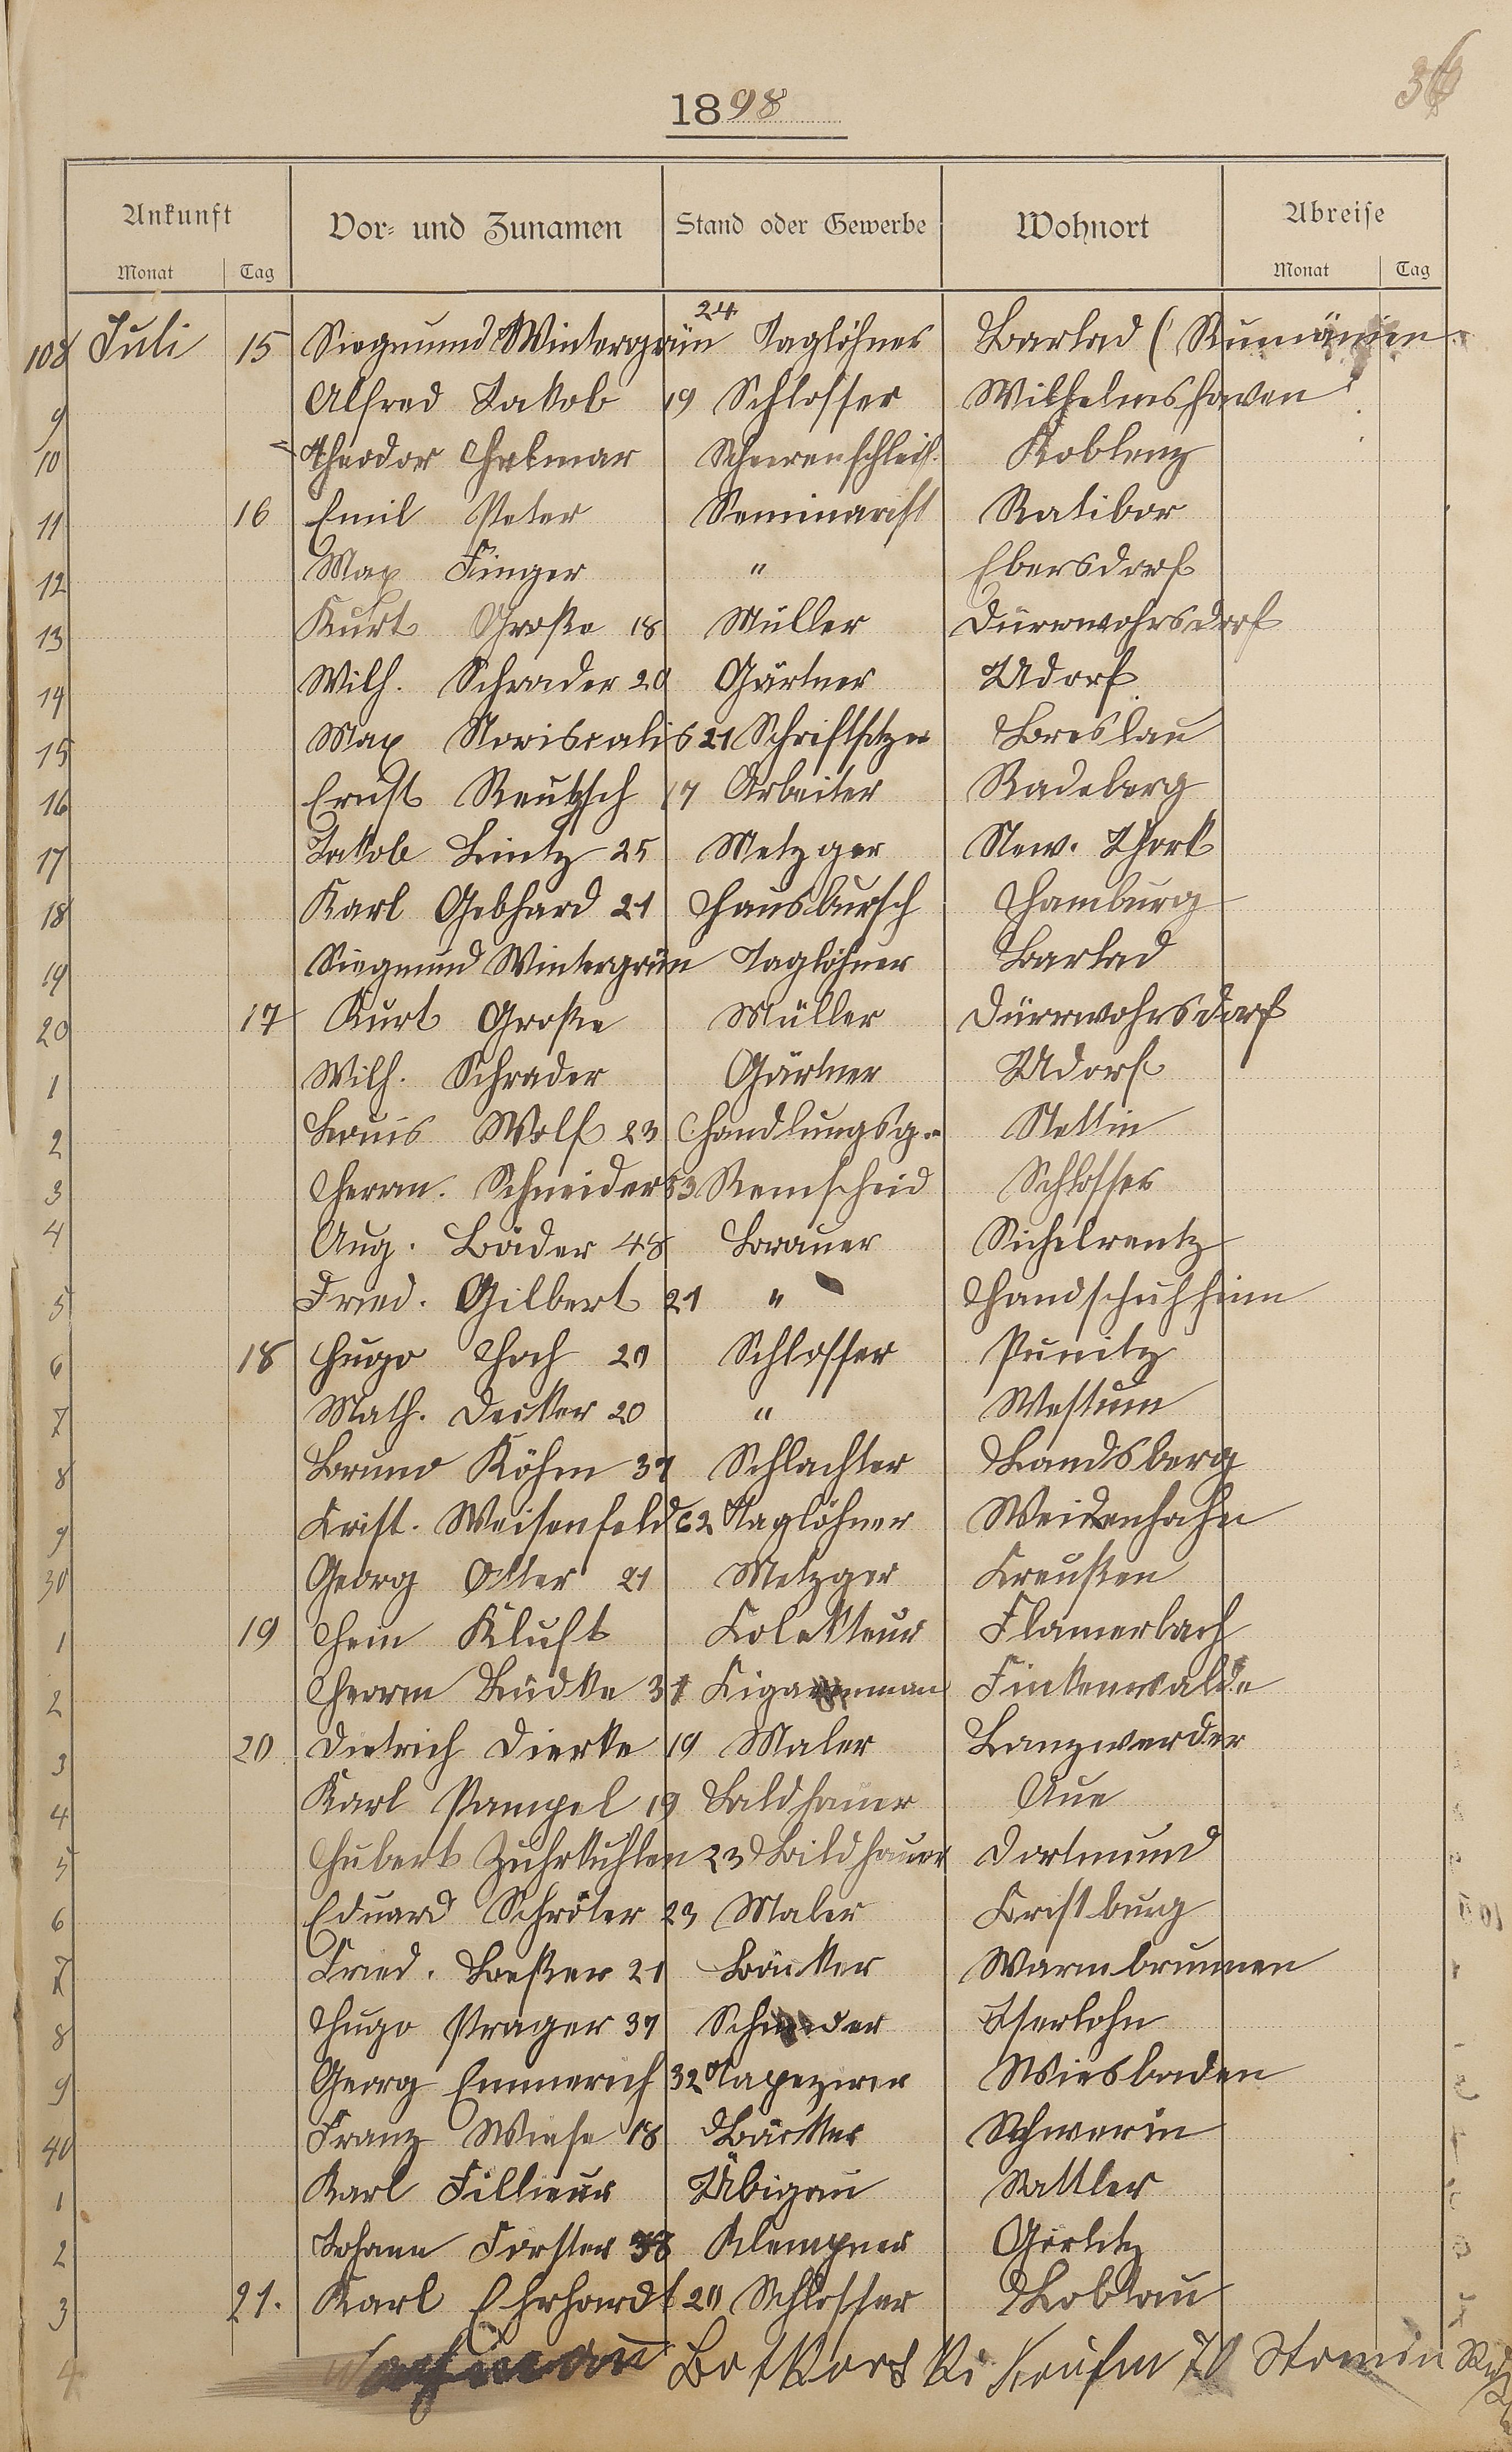 36
1898
Ankunft Vor- und Zunamen Stand oder Gewerbe Wohnort Abreise
Monat Tag Monat Tag
108 Juli 15 Siegmund Wintergrün 24 Taglöhner Barlad (Rumänien
9 Alfred Jakob 19 Schlosser Wilhelmshaven
10 Theodor Helmar Scheerenschleif. Koblenz
11 16 Emil Peter Seminarist Ratibor
12 Max Finger " Ebersdorf
13 Kurt Große 18 Müller Dürrwohrsdorf
14 Wilh. Schrader 20 Gärtner Udorf
15 Max 21 Schriftsetzer Breslau
16 Ernst Rentzsch 17 Arbeiter Radeberg
17 Jakob Lintz 25 Metzger New. York
18 Karl Gebhard 21 Hausbursch Hamburg
19 Siegmund Wintergrün Taglöhner Barlad
20 17 Kurt Große Müller Dürrwohrsdorf
1 Wilh. Schrader Gärtner Udorf
2 Louis Wolf 23 Handlungsg. Stettin
3 Herm. Schneider 53 Remscheid Schlosser
4 Aug. Bäder 48 Brauer Sichelreutz
5 Fried. Gilbert 21 " Handschuhheim
6 18 Hugo Hoch 20 Schlosser Punitz
7 Math. Decker 20 " Westum
8 Bruno Köhm 37 Schlachter Landsberg
9 Krist. Weisenfeld 62 Taglöhner Weidenhahn
30 Georg Otter 21 Metzger Kreußen
1 19 Hein Kluft Kolekteur Flamerbach
2 Herm Lüdke 31 Finkenwalde
3 20 Dietrich Dierke 19 Maler Lanzwarder
4 Karl Pampel 19 Bildhauer Aue
5 Hubert Zuhrkuhlen 23 Bildhauer Dortmund
6 Eduard Schröter 23 Maler Kristburg
7 Fried. Boeßer 21 Bäcker Warmbrunnen
8 Hugo Prager 37 Schneider Iserlohn
9 Georg Emmerich 32 Tapezirer Wiesbaden
40 Franz Wiese 18 Bäcker Schwerin
1 Karl Fillieur Übigau Sattler
2 Johann Forster 38 Klempner Görlitz
3 21. Karl Ehrhardt 20 Schlosser Loblau
4 Kaufm 70